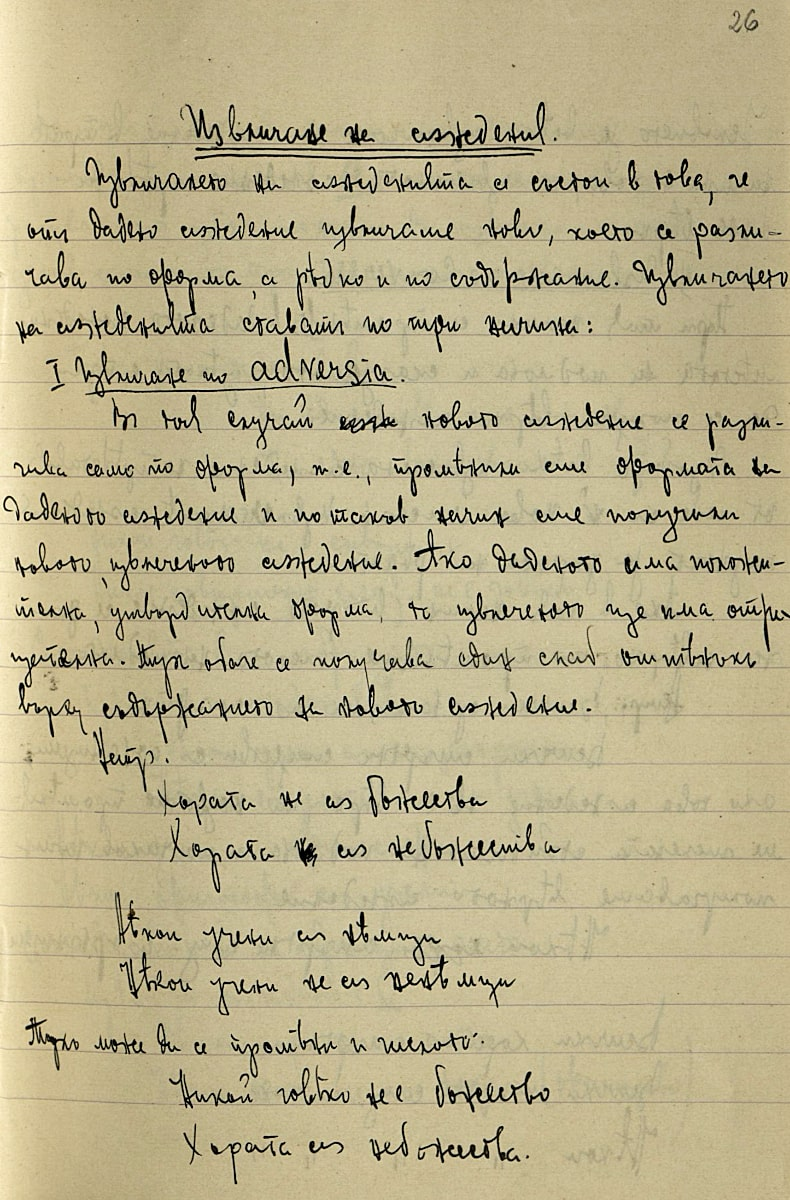 26
Извличане на сѫждения.
Извличането на сѫжденията се състои в това, че
отъ дадено сѫждение извличаме ново, което се разли-
чава по форма, а рѣдко и по съдържание. Извличането
на сѫжденията ставатъ по три начина:
I Извличане по adversia.
Въ тоя случай новото сѫждение се разли-
чава само по форма, т.е., промѣнили сме формата на
даденото сѫждение и по такъв начин сме получили
новото, извлеченото сѫждение. Ако даденото има положи-
телна, утвърдителна форма, то извлеченото ще има отри-
цателна. Тукъ обаче се получава един слаб оттѣнъкъ
върху съдържанието на новото сѫждение.
Напр.
Хората не сѫ божества
Хората сѫ небожества
Нѣкои учени сѫ нѣмци
Нѣкои учени не сѫ ненѣмци
Тукъ може да се промѣни и числото:
Никой човѣкъ не е божество
Хората сѫ небожества.